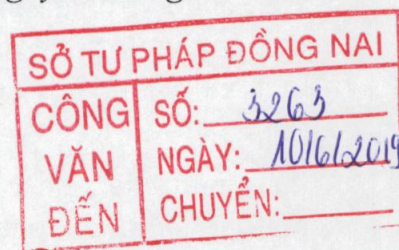 SỞ TƯ PHÁP ĐỒNG NAI
CÔNG VĂN ĐẾN
SỐ: 3263
NGÀY: 10/6/2019
CHUYỂN: